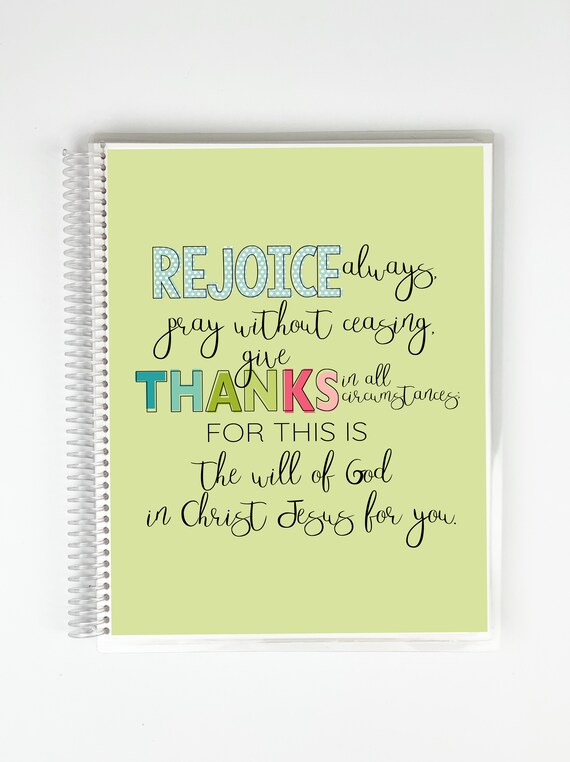 REJOICE always,
pray without ceasing,
give
THANKS in all
circumstances;
FOR THIS IS
the will of God
in Christ Jesus for you.